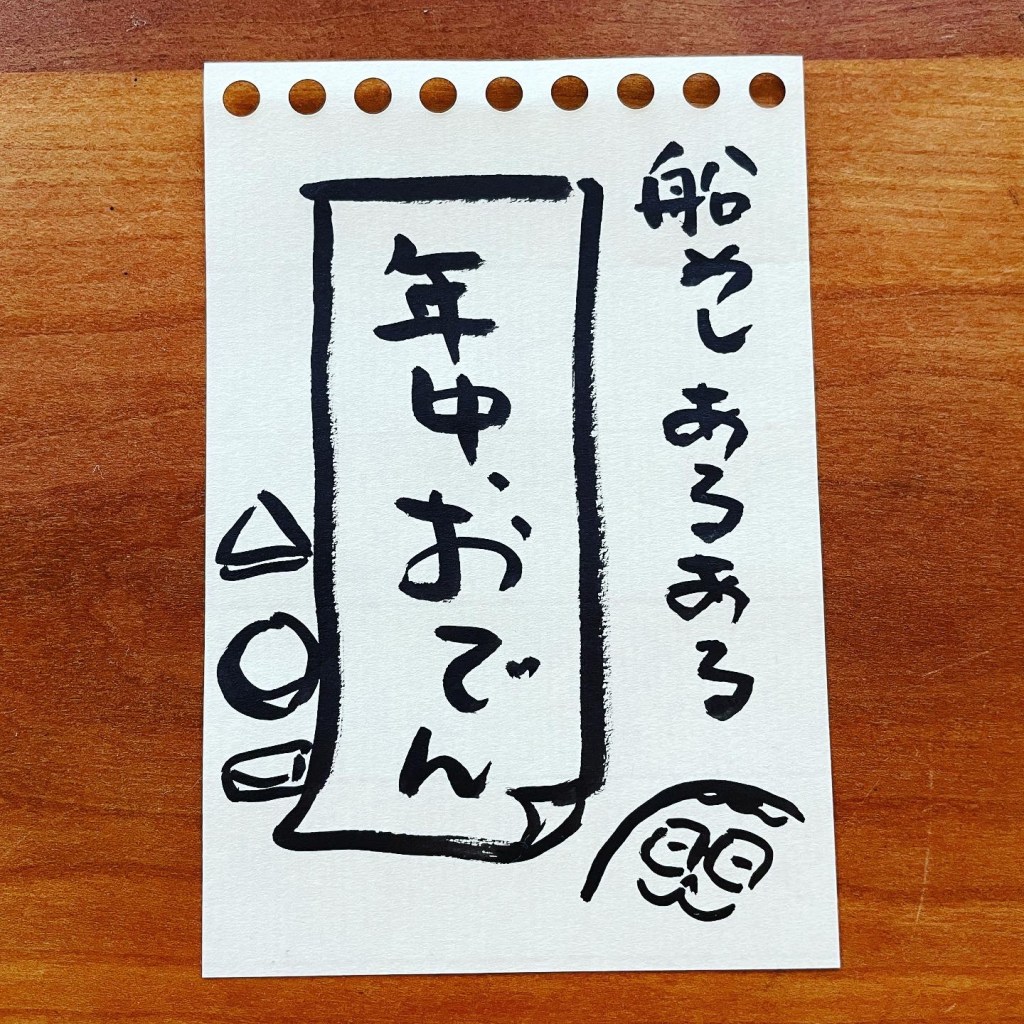 船めしあるある
年中おでん